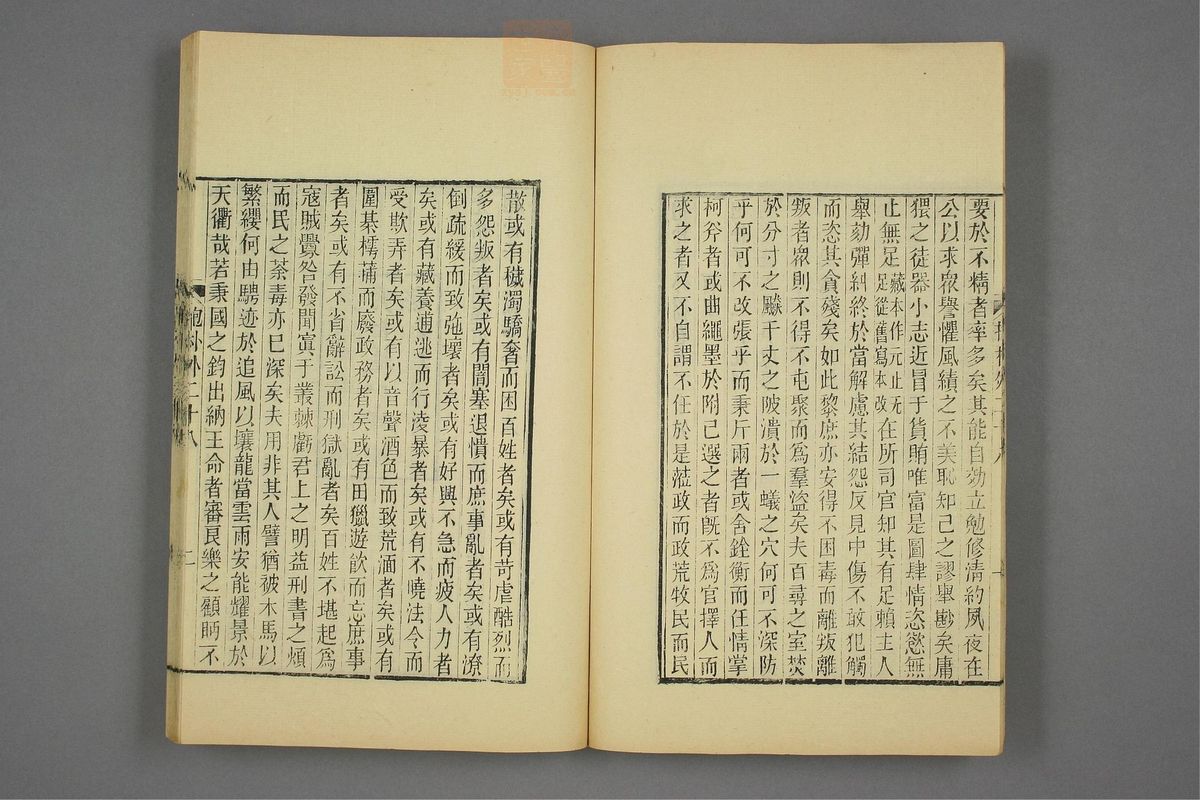 要於不精者率多矣其能自効立勉修清約夙夜在
公以求眾譽懼風績之不美恥知己之謬舉尠矣庸
猥之徒器小志近冒于貨賄唯富是圖肆情恣慾無
止無足藏本作元止无足從舊寫本改在所司官知其有足賴主人
舉劾彈糾終於當解慮其結怨反見中傷不敢犯觸
而恣其貪殘矣如此黎庶亦安得不困毒而離叛離
叛者眾則不得不屯聚而為羣盜矣夫百尋之室焚
於分寸之飇千丈之陂潰於一蟻之穴何可不深防
乎何可不改張乎而秉斤兩者或舍銓衡而任情掌
柯斧者或曲繩墨於附己選之者旣不為官擇人而
求之者又不自謂不任於是蒞政而政荒牧民而民
散或有穢濁驕奢而困百姓者矣或有苛虐酷烈而
多怨叛者矣或有闇塞退憒而庶事亂者矣或有潦
倒疏緩而致弛壞者矣或有好興不急而疲人力者
矣或有藏養逋逃而行凌暴者矣或有不曉法令而
受欺弄者矣或有以音聲酒色而致荒湎者矣或有
圍棊樗蒱而廢政務者矣或有田獵遊飲而忘庶事
者矣或有不省辭訟而刑獄亂者矣百姓不堪起為
寇賊釁咎發聞寘于叢棘虧君上之明益刑書之煩
而民之荼毒亦已深矣夫用非其人譬猶被木馬以
繁纓何由騁迹於追風以壤龍當雲雨安能耀景於
天衢哉若秉國之鈞出納王命者審良樂之顧眄不
抱朴外二十八
二